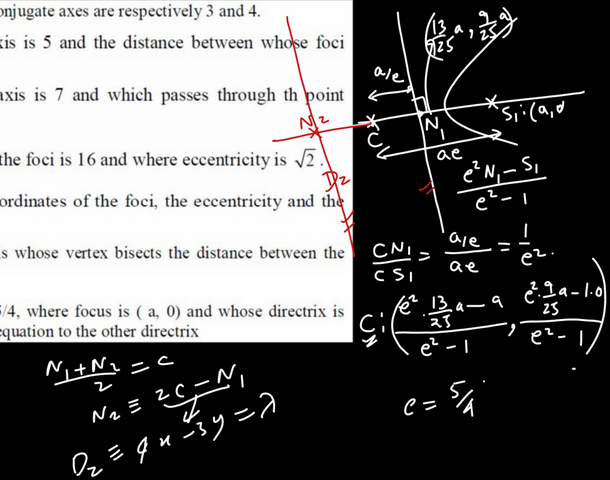 onjugate axes are respectively 3 and 4.
xis is 5 and the distance between whose foci
axis is 7 and which passes through th point
the foci is 16 and where eccentricity is √2.
ordinates of the foci, the eccentricity and the
s whose vertex bisects the distance between the
5/4, where focus is ( a, 0) and whose directrix is
equation to the other directrix
(13/25 a, 9/25 a)
a/e
N2
C
N1
S1:(a,0
ae
D2
(e²N1 - S1)/(e² - 1)
CN1/CS1 = (a/e)/(ae) = 1/e².
C: ((e²·13/25 a - a)/(e² - 1), (e²·9/25 a - 1·0)/(e² - 1))
(N1 + N2)/2 = C
N2 ≡ 2C - N1
D2 ≡ 4x - 3y = λ
e = 5/4